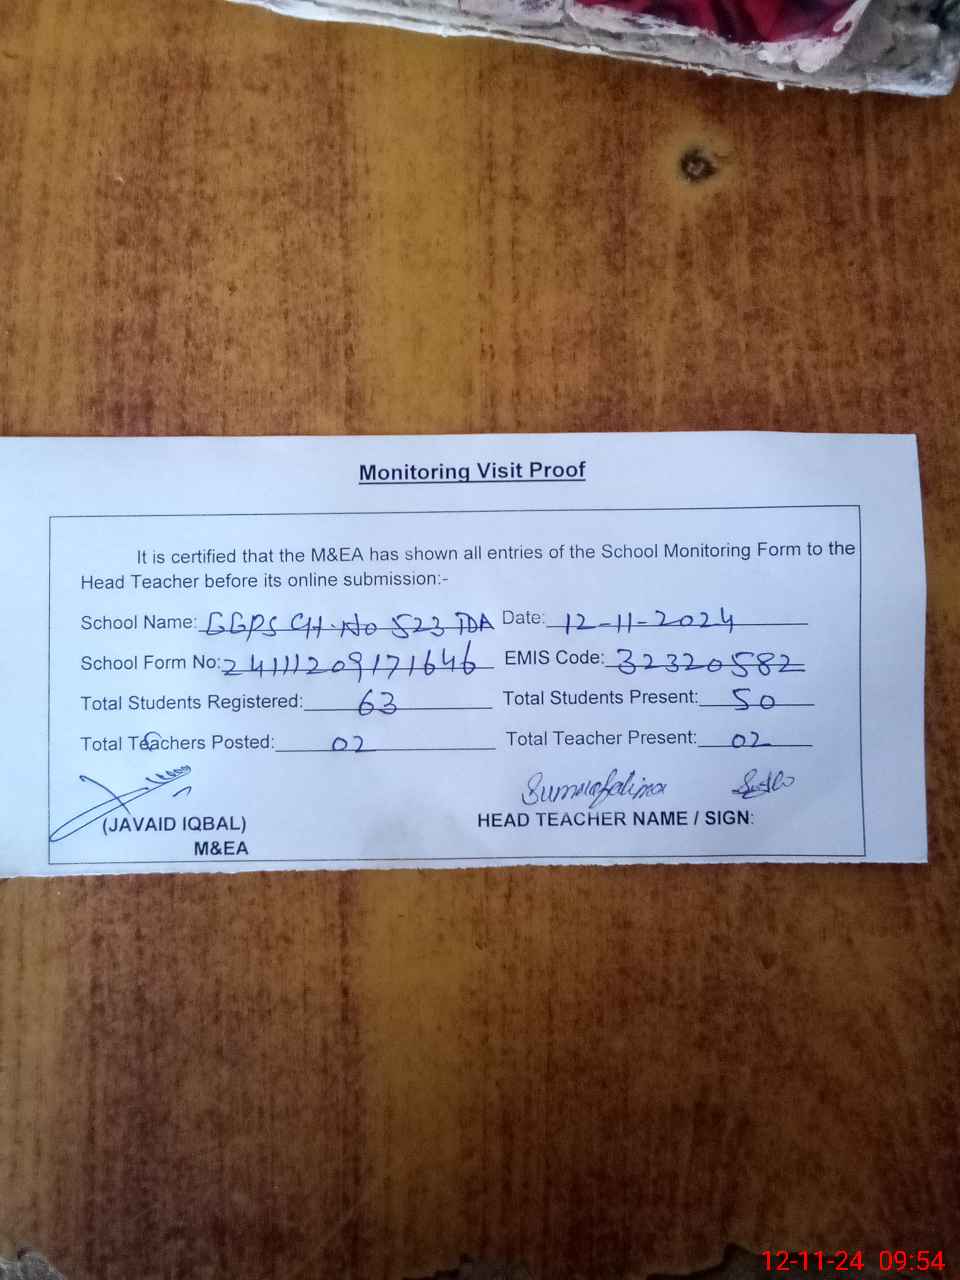 Monitoring Visit Proof
It is certified that the M&EA has shown all entries of the School Monitoring Form to the
Head Teacher before its online submission:-
School Name: GGPS CH.No 523 TDA Date: 12-11-2024
School Form No: 241111209171646 EMIS Code: 32320582
Total Students Registered: 63 Total Students Present: 50
Total Teachers Posted: 02 Total Teacher Present: 02
(JAVAID IQBAL) HEAD TEACHER NAME / SIGN:
M&EA
12-11-24 09:54